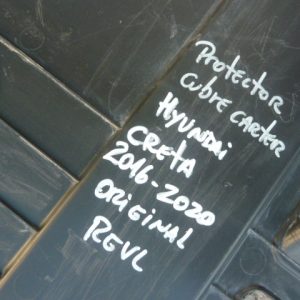 Protector
Cubre CARTER
HYUNDAI
CRETA
2016-2020
ORIGINAL
REVL